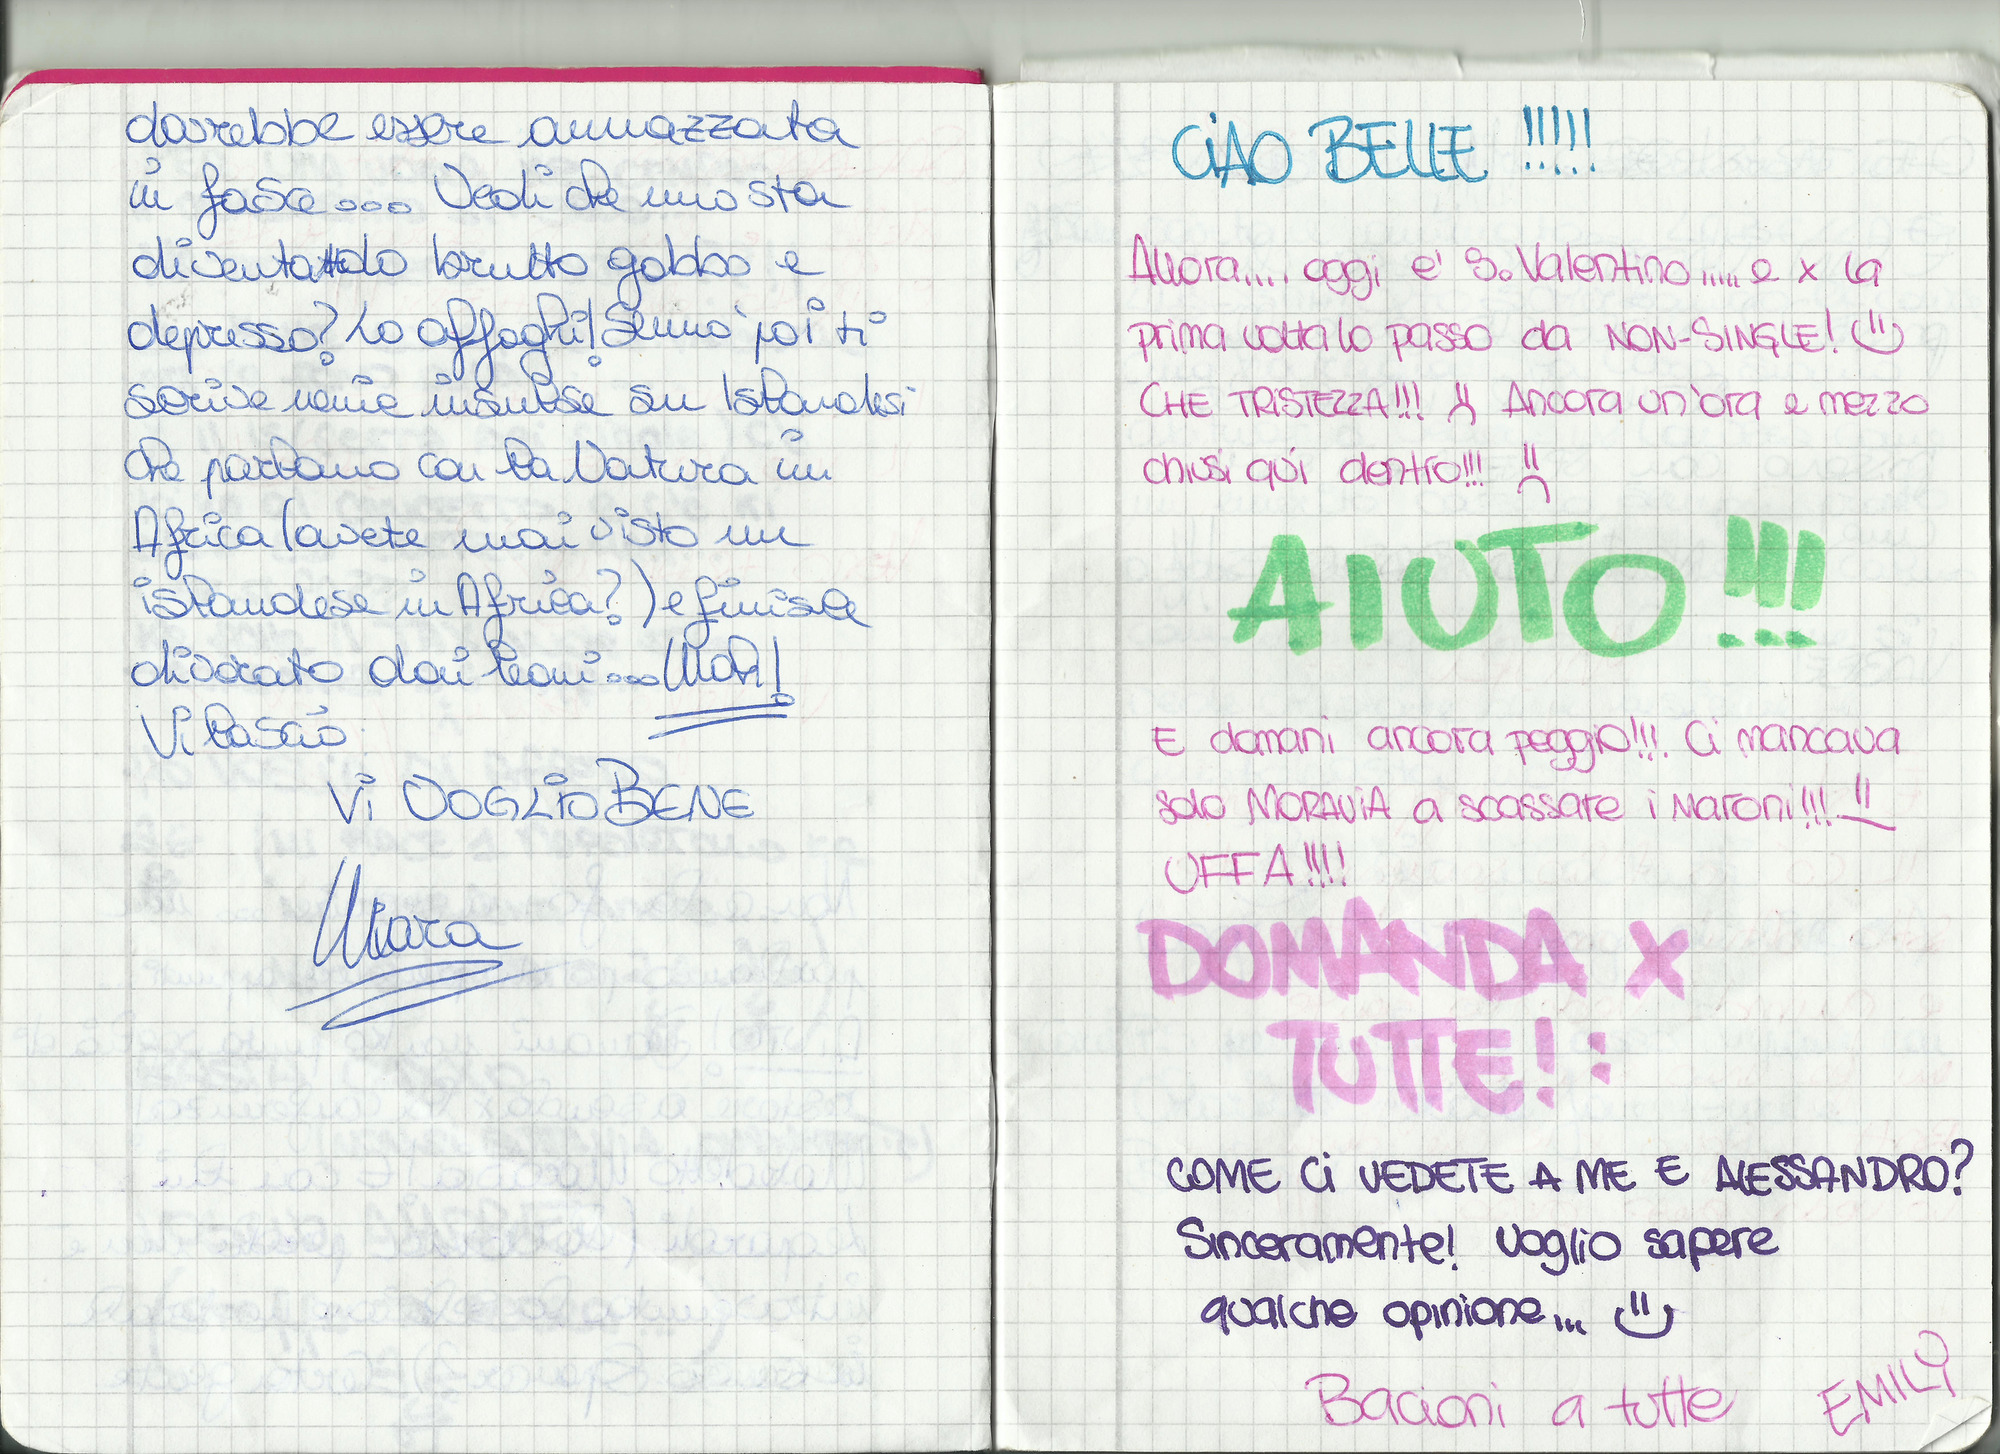 dovrebbe essere ammazzata
in fasce... Vedi che uno sta
diventando brutto gobbo e
depresso? Lo affoghi! Sennò poi ti
scrive menie insulse su Islandesi
che parlano con la Natura in
Africa (avete mai visto un
islandese in Africa?) e finisce
divorato dai leoni... Mah!
Vi lascio
Vi VOGLIO BENE
CiAO BELLE !!!!!
Allora.... oggi e' S. Valentino..... e x la
prima volta lo passo da NON-SINGLE!
CHE TRISTEZZA!!! Ancora un'ora e mezzo
chiusi qui dentro!!!
AIUTO!!!
E domani ancora peggio!!!! Ci mancava
solo MORAVIA a scassare i maroni!!!
UFFA!!!!
DOMANDA X
TUTTE! :
COME Ci VEDETE A ME E ALESSANDRO?
Sinceramente! Voglio sapere
qualche opinione...
Bacioni a tutte EMILY